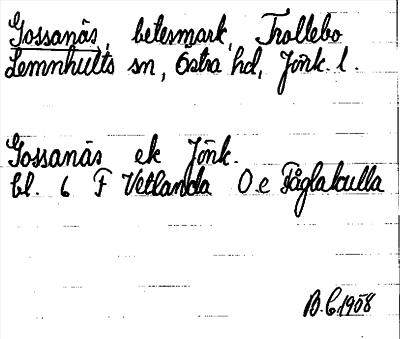 Gossanäs, betesmark, Trollebo
Lemnhults sn, Östra hd, Jönk. l.
Gossanäs ek Jönk.
bl. 6 F Vetlanda O e Fåglakulla
B.C.1908